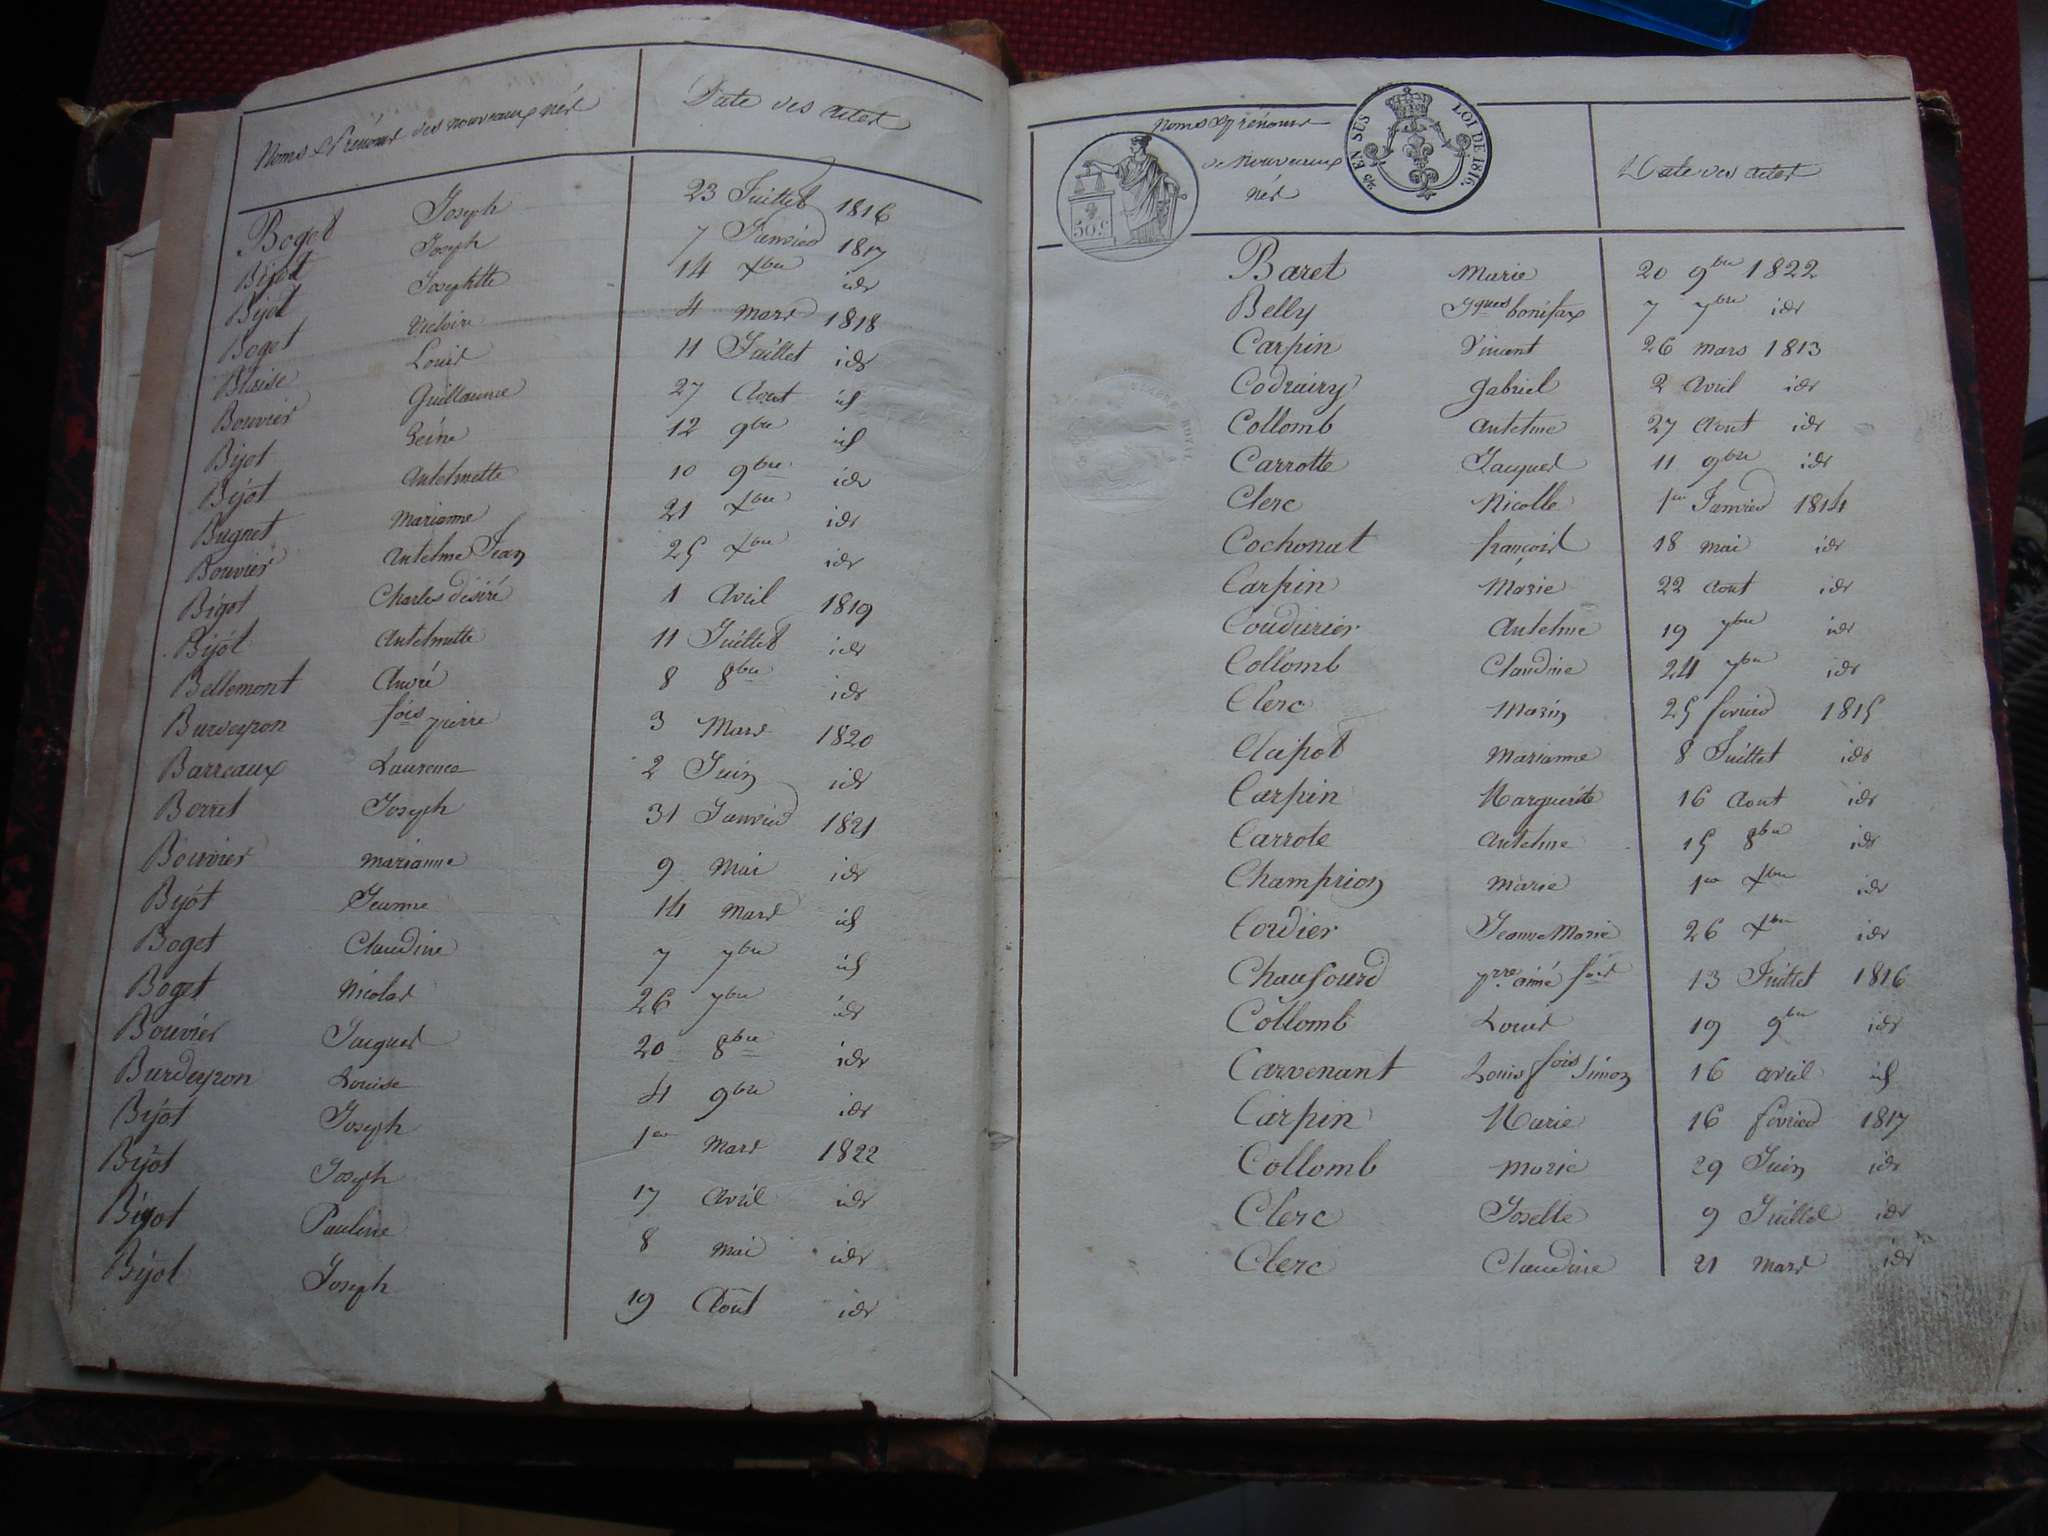 Noms & Prénoms des nouveaux nés Date des actes
Boget Joseph 23 Juillet 1816
Bijot Joseph 7 Janvier 1817
Bijot Josephtte 14 Xbre id
Boget Victoire 4 Mars 1818
Blaise Louis 11 Juillet id
Bouvier Guillaume 27 Aout id
Bijot Reine 12 9bre id
Bijot Antelmette 10 9bre id
Bugnet Marianne 21 Xbre id
Bouvier Antelme Jean 25 Xbre id
Bigot Charles désiré 1 Avril 1819
Bijot Antelmette 11 Juillet id
Bellemont André 8 8bre id
Burdeyron fois pierre 3 Mars 1820
Barreaux Laurence 2 Juin id
Borret Joseph 31 Janvier 1821
Bouvier Marianne 9 Mai id
Bijot Jeanne 14 Mars id
Boget Claudine 7 7bre id
Boget Nicolas 26 7bre id
Bouvier Jacques 20 8bre id
Burdeyron Louise 4 9bre id
Bijot Joseph 1er Mars 1822
Bijot Joseph 17 Avril id
Bijot Pauline 8 Mai id
Bijot Joseph 19 Aout id
Noms & prénoms
de Nouveaux
nés
Date des actes
50 c
EN SUS
LOI DE 1816.
Baret Marie 20 9bre 1822
Belly Jques bonifax 7 7bre id
Carpin Vincent 26 mars 1813
Codrairy gabriel 2 Avril id
Collomb Antelme 27 Aout id
Carrotte Jacques 11 9bre id
Clerc Nicolle 1er Janvier 1814
Cochonat françois 18 mai id
Carpin Marie 22 Aout id
Coudurier Antelme 19 7bre id
Collomb Claudine 24 7bre id
Clerc Marin 25 fevrier 1815
Clapot Marianne 8 Juillet id
Carpin Marguerite 16 Aout id
Carrote Antelme 15 8bre id
Champion Marie 1er Xbre id
Cordier Jeanne Marie 26 Xbre id
Chaufourd prre aimé fois 13 Juillet 1816
Collomb Louis 19 9bre id
Carvenant Louis fois Simon 16 avril id
Carpin Marie 16 fevrier 1817
Collomb Marie 29 Juin id
Clerc Joselle 9 Juillet id
Clerc Claudine 21 Mars id